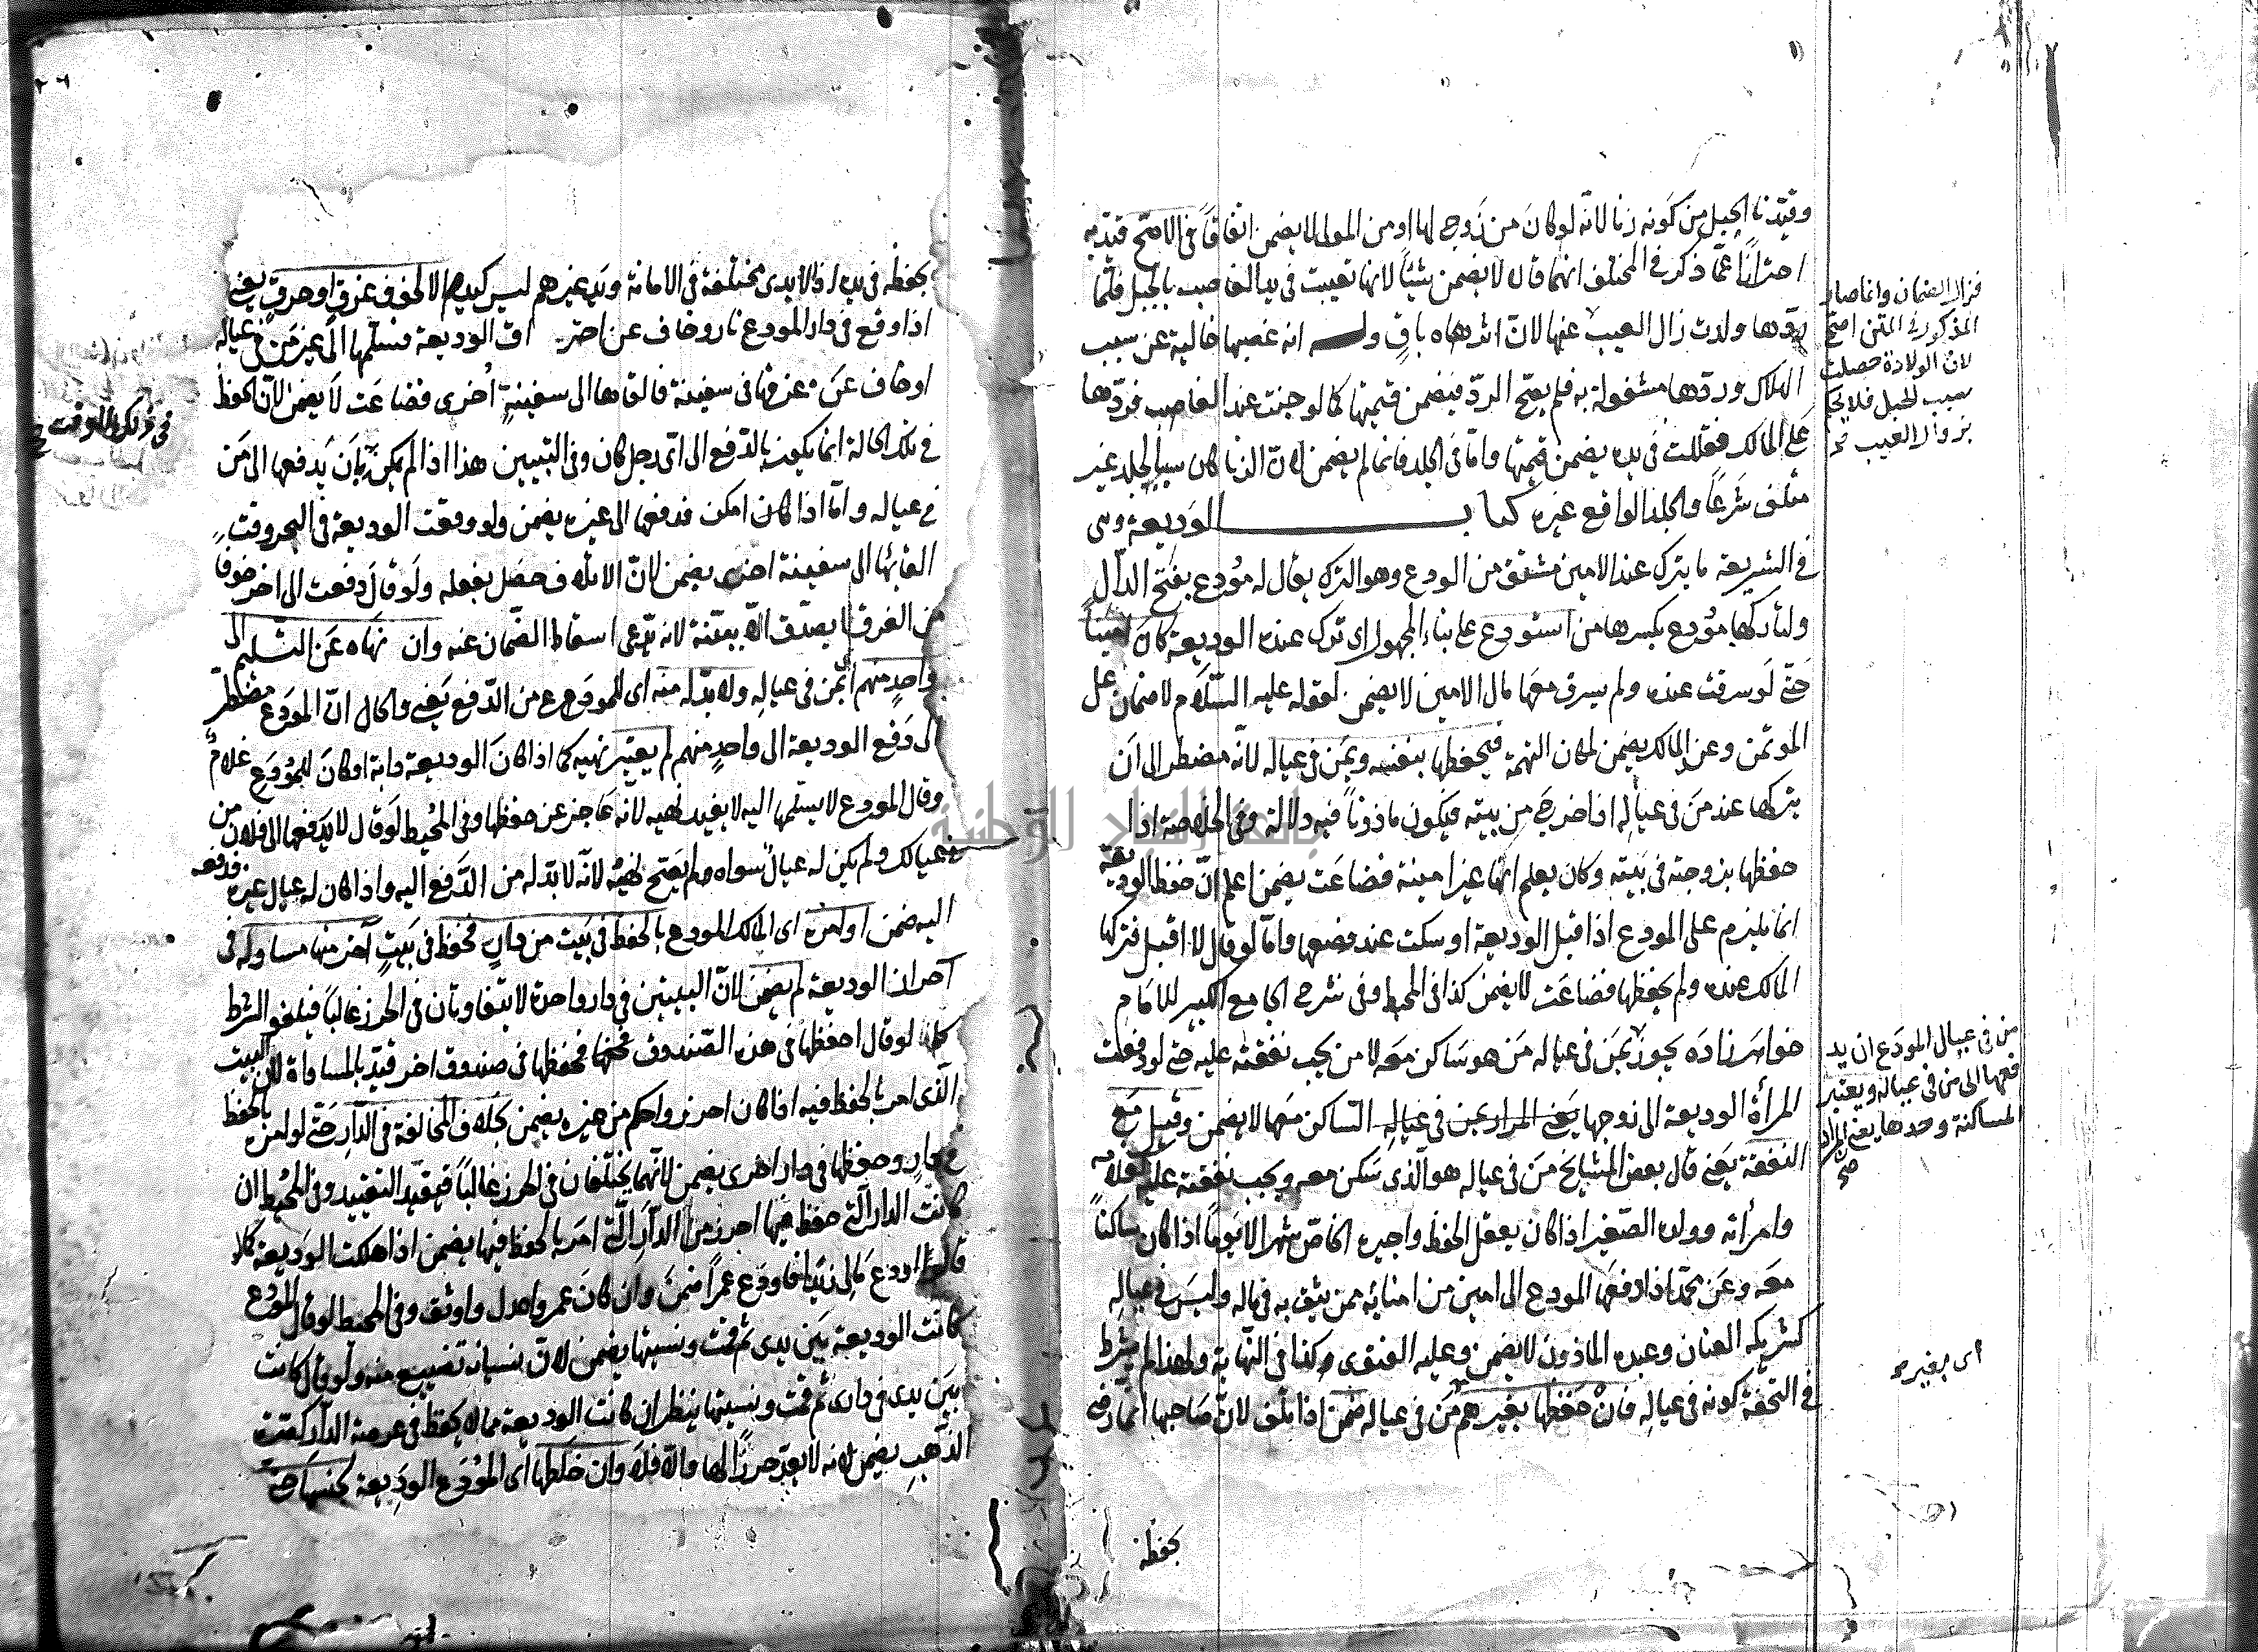 وقيّدنا الحبل من كونه زنا لانّه لو كان من زوج لها او من المولى لا يضمن اتفاقاً في الاصح قيّد به
احترازاً عمّا ذكر في المختلف انهما قالا لا يضمن شيئاً لانها تعيبت في يد الغاصب بالحبل فلمّا
ردّها وولدت زال العيب عنها لانّ اثرهما باقٍ وله انه غصبها خالية عن سبب
الهلاك وردّها مشغولة به فلم يصحّ الردّ فيضمن قيمتها كما لو جنت عند الغاصب فردّها
على المالك فقتلت في يده يضمن قيمتها وامّا في الجلد فانما لم يضمن لانّ الزنا كان سبباً لجلد غير
متلف شرعاً والجلد الواقع غيره كتاب الوديعة وهى
في الشريعة ما يترك عند الامين مشتق من الودع وهو الترك يقال له مُودَع بفتح الدّال
ولتاركها مودِع بكسرها من استودع على بناء المجهول اى ترك عنده الوديعة كان اميناً
حتّى لو سرقت عنده ولم يسرق معها مال الامين لا يضمن لقوله عليه السّلام لا ضمان على
المؤتمن وعن مالك يضمن لمكان التهمة فيحفظها بنفسه وبمن في عياله لانّه مضطر الى ان
يتركها عند من في عياله اذا خرج من بيته فيكون ماذوناً فيه دلالة وفي الخلاصة اذا
حفظها بزوجته في بيته وكان يعلم انها غير امينة فضاعت يضمن اعلم انّ حفظ الوديعة
انما يلزم على المودع اذا قبل الوديعة او سكت عند وضعها وامّا لو قال لا اقبل فتركها
المالك عنده ولم يحفظها فضاعت لا يضمن كذا في المحيط وفي شرح الجامع الكبير للامام
خواهر زاده يجوز بمن في عياله من هو ساكن معه لا من يجب نفقته عليه حتّى لو دفعت
المرأة الوديعة الى زوجها يعنى المراد بمن في عياله السّاكن معها لا يضمن وقيل مع
النفقة يعنى قال بعض المشايخ من في عياله هو الّذى سكن معه ويجب نفقته عليه كغلامه
وامرأته وولده الصّغير اذا كان يعقل الحفظ واجيره الخاصّ شهراً لا يوماً اذا كان ساكناً
معه وعن محمّد اذا دفعها المودع الى امين من امنائه ممن يثق به في ماله وليس في عياله
كشريكه العنان وعبده الماذون لا يضمن وعليه الفتوى وكذا في النّهاية ولهذا لم يشترط
في التّحفة كونه في عياله فان حفظها بغيرهم من في عياله ضمن اذا تلف لانّ صاحبها انّما رضى
بحفظه
فزال الضمان وانما صار
المذكور في المتن اصحّ
لانّ الولادة حصلت
بسبب الحبل فلا يحكم
بزوال العيب
من في عيال المودع ان يد
فعها الى من في عياله ويعتبر
المساكنة وحدها يعنى المراد
اى بغيره
بحفظه في يده اذ الايدى مختلفة في الامانة ويد غيرهم ليس كيدهم الا لخوف غرق او حرق يعنى
اذا وقع في دار المودع نار وخاف عن احتراق الوديعة فسلّمها الى غير من في عياله
او خاف عن غرقها في سفينة فالقاها الى سفينة اُخرى فضاعت لا يضمن لانّ الحفظ
في تلك الحالة انما يكون بالدّفع الى اىّ رجل كان وفي التبيين هذا اذا لم يمكن بان يدفعها الى من
في عياله وامّا اذا كان امكن فدفعها الى غيره يضمن ولو وقعت الوديعة في البحر وقت
القائها الى سفينة اخرى يضمن لانّ الاتلاف حصل بفعله ولو قال دفعت الى اخر خوفا
من الغرق لا يصدّق الّا ببيّنة لانه يدّعى اسقاط الضّمان عنه وان نهاه عن التّسليم الى
واحد منهم اى ممن في عياله ولا بدّ له منه اى للمودع من الدّفع يعنى والحال انّ المودع مضطر
الى دفع الوديعة الى واحد منهم لم يعتبر نهيه كما اذا كان الوديعة دابة او كان للمودع غلامٌ
وقال المودع لا يسلّمها اليه لا يفيد نهيه لانّه عاجز عن حفظها وفي المحيط لو قال لا تدفعها الى فلان من
عيالك ولم يكن له عيال سواه ولم يصحّ نهيه لانّه لا بدّ له من الدّفع اليه واذا كان له عيال غيره فدفعه
اليه ضمن او امره اى المالك المودع بالحفظ في بيت من دارٍ فحفظ في بيتٍ آخر منها مساو له في
احراز الوديعة لم يضمن لانّ البيتين في دار واحدة لا يتفاوتان في الحرز غالباً فيلغو الشرط
كما لو قال احفظها في هذه الصّندوق فحفظها في صندوق اخر قيّد بالمساواة لانّ البيت
الّذى امر بالحفظ فيه اذا كان احرز واحكم من غيره يضمن بخلاف المخالفة في الدّار حتّى لو امره بالحفظ
في دار وحفظها في دار اخرى يضمن لانّهما يختلفان في الحرز غالباً فيفيد التقييد وفي المحيط ان
كانت الدار الّتى حفظ فيها احرز من الدّار الّتى امر بالحفظ فيها يضمن اذا هلكت الوديعة كما
قال اودع مالى زيداً فاودع عمراً ضمن وان كان عمرو اعدل واوثق وفي المحيط لو قال المودع
كانت الوديعة بين يدى ثم قمت ونسيتها يضمن لانّ نسيانه تضييع منه ولو قال كانت
بين يدى في دارى ثم قمت ونسيتها ينظر ان كانت الوديعة مما لا يحفظ في عرصة الدّار كصرّة
الذّهب يضمن لانه لا يعدّ حرزاً لها والا فلا وان خلطها اى المودع الوديعة بجنسها حتّى
في ذلك الوقت